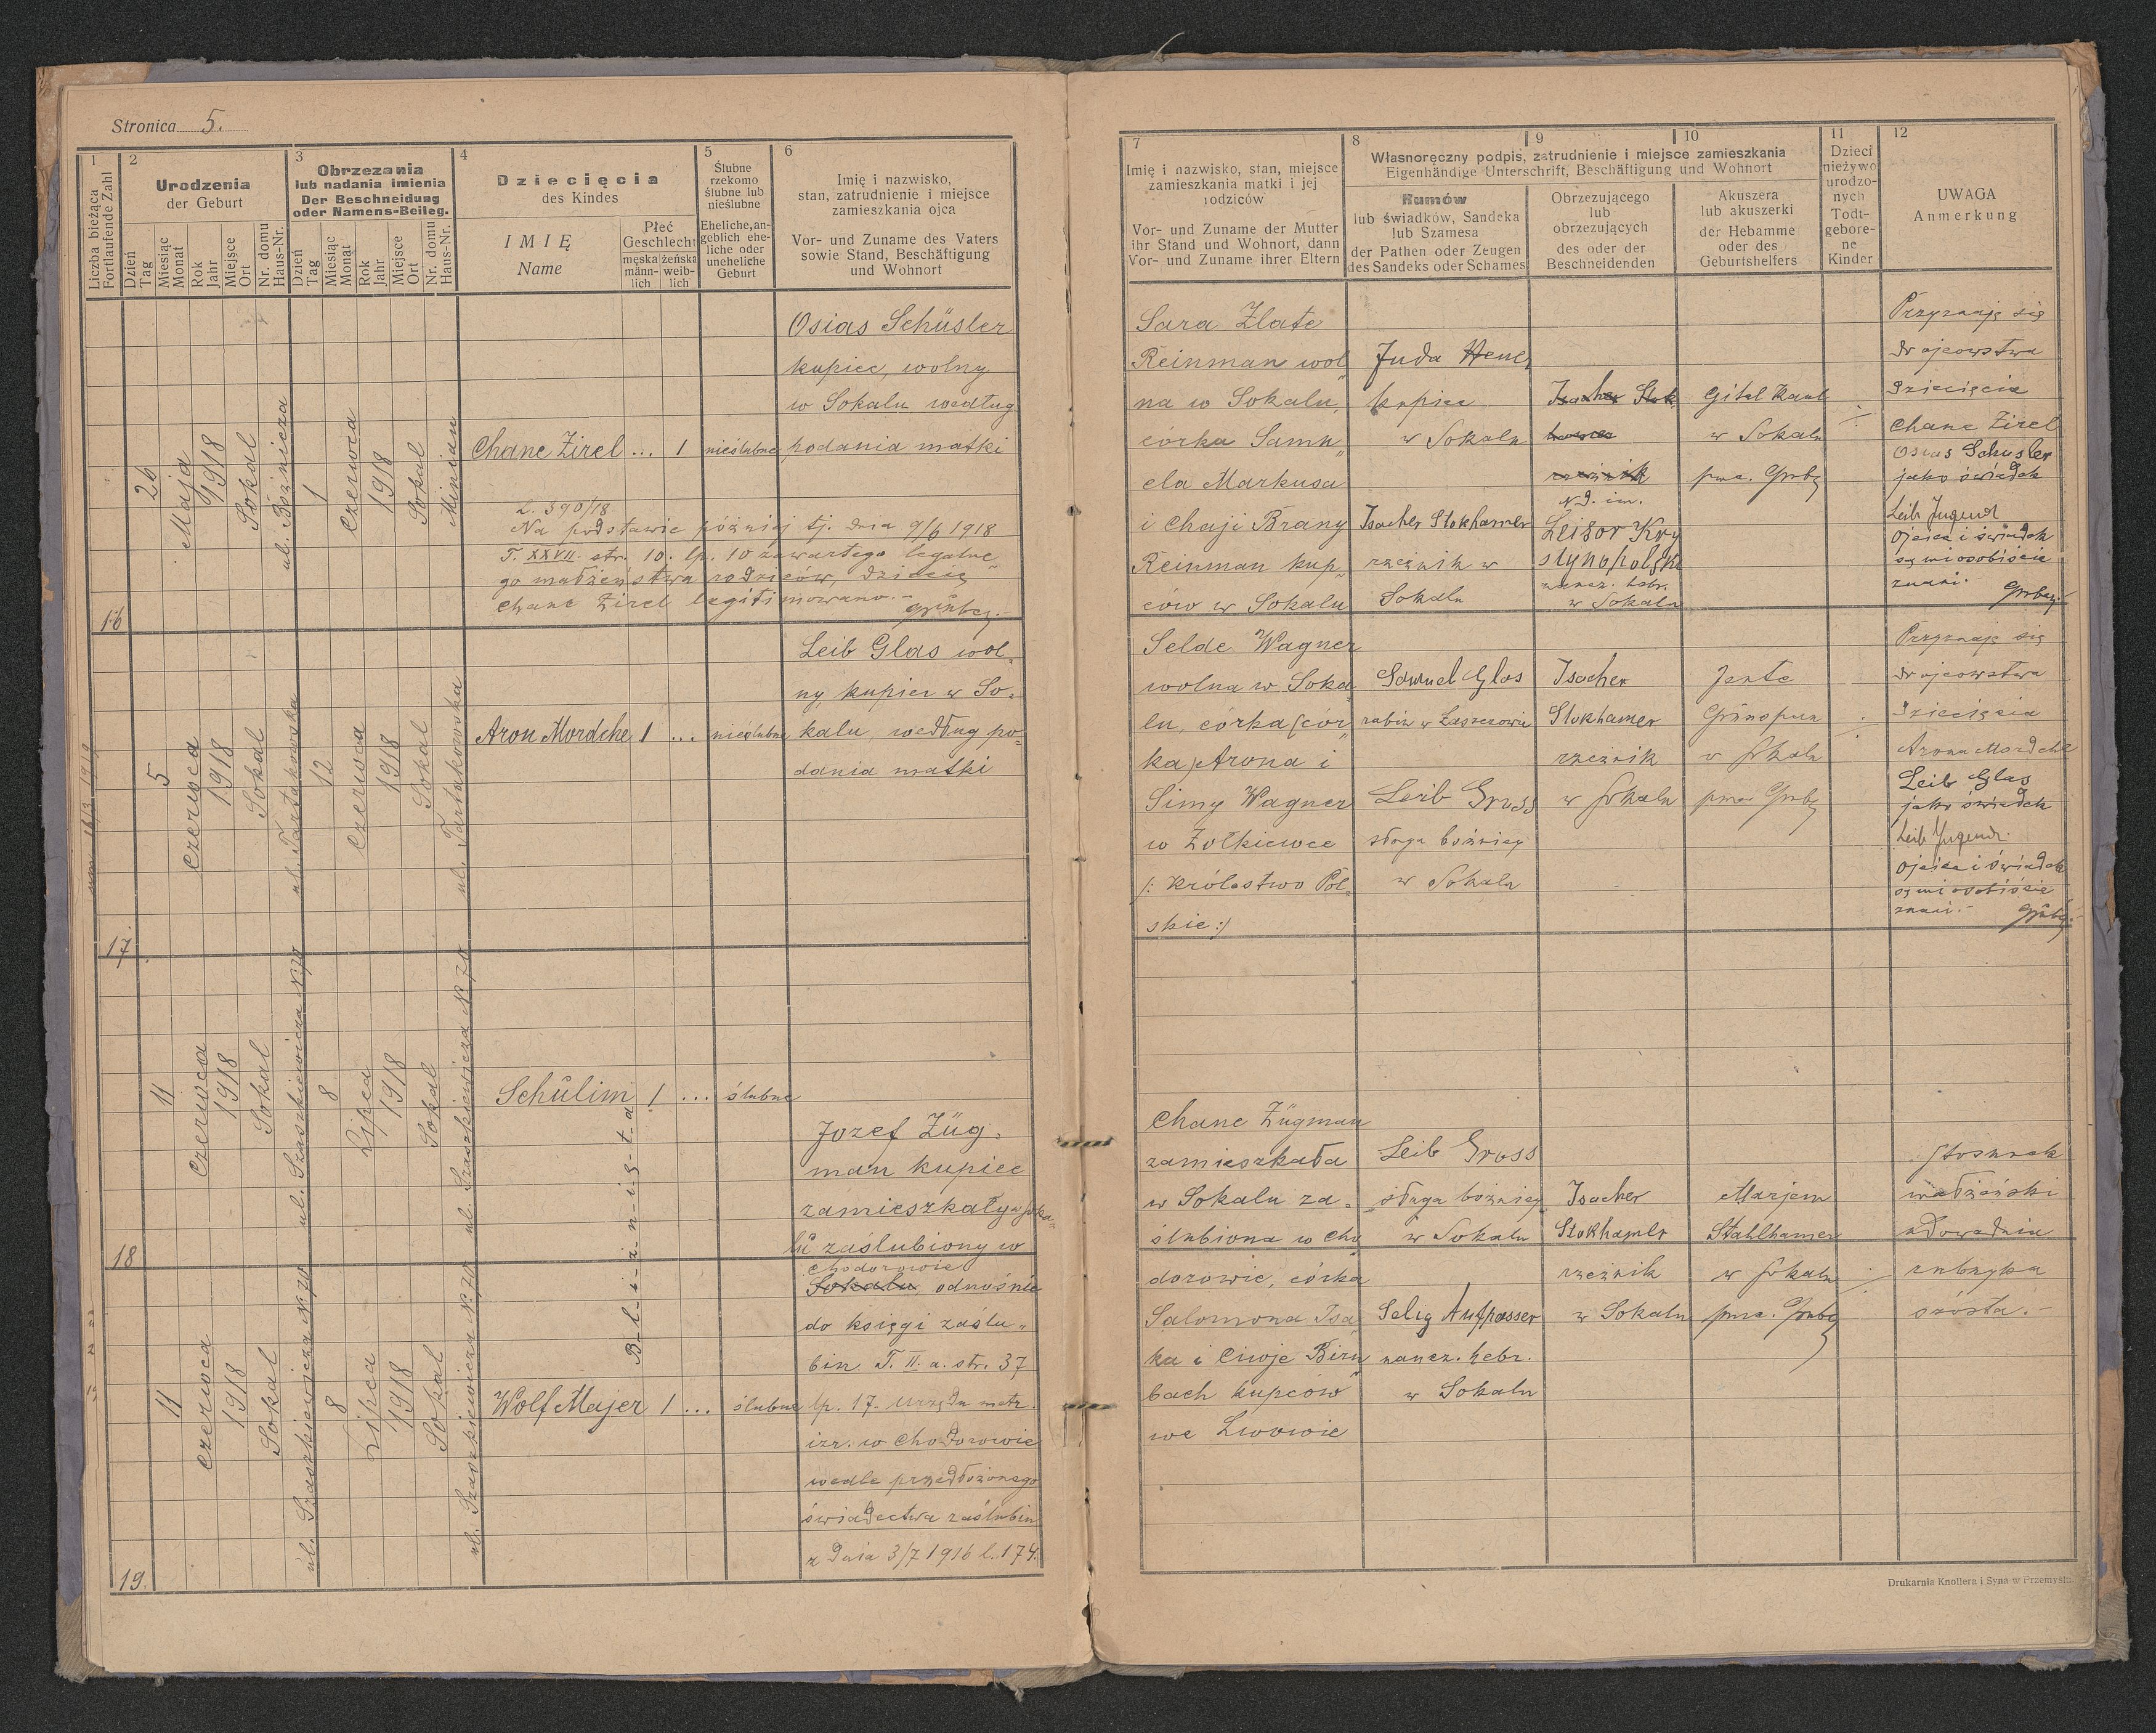 Stronica 5.
1
Liczba bieżąca
Fortlaufende Zahl
2
Urodzenia
der Geburt
Dzień
Tag
Miesiąc
Monat
Rok
Jahr
Miejsce
Ort
Nr. domu
Haus-Nr.
3
Obrzezania
lub nadania imienia
Der Beschneidung
oder Namens-Beileg.
Dzień
Tag
Miesiąc
Monat
Rok
Jahr
Miejsce
Ort
Nr. domu
Haus-Nr.
4
Dziecięcia
des Kindes
IMIĘ
Name
Płeć
Geschlecht
męska
männ-
lich
żeńska
weib-
lich
5
Ślubne
rzekomo
ślubne lub
nieślubne
Eheliche, an-
geblich ehe-
liche oder
uneheliche
Geburt
6
Imię i nazwisko,
stan, zatrudnienie i miejsce
zamieszkania ojca
Vor- und Zuname des Vaters
sowie Stand, Beschäftigung
und Wohnort
7
Imię i nazwisko, stan, miejsce
zamieszkania matki i jej
rodziców
Vor- und Zuname der Mutter
ihr Stand und Wohnort, dann
Vor- und Zuname ihrer Eltern
8
9
10
Własnoręczny podpis, zatrudnienie i miejsce zamieszkania
Eigenhändige Unterschrift, Beschäftigung und Wohnort
Kumów
lub świadków, Sandeka
lub Szamesa
der Pathen oder Zeugen
des Sandeks oder Schames
Obrzezującego
lub
obrzezujących
des oder der
Beschneidenden
Akuszera
lub akuszerki
der Hebamme
oder des
Geburtshelfers
11
Dzieci
nieżywo
urodzo-
nych
Todt-
gebore-
ne
Kinder
12
UWAGA
Anmerkung
16
26
Maja
1918
Sokal
ul. Bóżnicza
1
Czerwca
1918
Sokal
Minian
Chane Zirel ... 1
nieślubne
Osias Schüsler
kupiec, wolny
w Sokalu według
podania matki
L. 390/18
Na podstawie później tj. dnia 9/6 1918
T. XXVII. str. 10. lp. 10 zawartego legalne
go małżeństwa rodziców, dziecię
Chane Zirel legitimowano.-
Sara Zlate
Reinman wol
na w Sokalu,
córka Samu
ela Markusa
i Chaji Brany
Reinman kup
ców w Sokalu
Juda
kupiec
w Sokalu
Isacher Stokhamer
rzeźnik w
Sokalu
Isacher Stok
rzeźnik
N.d. im.
Leisor Kry
stynopolski
naucz. hebr.
w Sokalu
Gitel
w Sokalu
Przyznaję się
do ojcowstwa
dziecięcia
Chane Zirel
Osias Schusler
jako świadek
Leib Jugend
Ojciec i świadek
są mi osobiście
znani.
17
5
Czerwca
1918
Sokal
ul. Tartakowska
12
Czerwca
1918
Sokal
ul. Tartakowska
Aron Mordche 1 ...
nieślubne
Leib Glas wol
ny, kupiec w So-
kalu, według po-
dania matki
Selde Wagner
wolna w Soka
lu, córka (cór
ka) Arona i
Simy Wagner
w Żołkiewce
/: Królestwo Pol-
skie :/
Samuel Glas
rabin w Łaszczowie
Leib Gross
sługa bóźnicy
w Sokalu
Isacher
Stokhamer
rzeźnik
w Sokalu
Jente
w Sokalu
Przyznaję się
do ojcowstwa
dziecięcia
Arona Mordche
Leib Glas
jako świadek
Leib Jugend.
Ojciec i świadek
są mi osobiście
znani.-
18
11
Czerwca
1918
Sokal
ul. Szaszkiewicza N. 70
8
Lipca
1918
Sokal
ul. Szaszkiewicza N. 70
Schülim 1 ...
ślubne
B-l-i-ź-n-i-ę-t-a
Jozef Züg-
man kupiec
zamieszkały w Soka-
lu zaślubiony w
Chodorowie
Sokalu odnośnie
do księgi zaślu-
bin T. II. a. str. 37
lp. 17. Urzędu metr.
izr. w Chodorowie
wedle przedłożonego
świadectwa zaślubin
z dnia 3/7 1916 l. 174.
19.
11
Czerwca
1918
Sokal
ul. Szaszkiewicza N. 70
8
Lipca
1918
Sokal
ul. Szaszkiewicza N. 70
Wolf Majer 1 ...
ślubne
Chane Zügman
zamieszkała
w Sokalu za-
ślubiona w Cho
dorowie, córka
Salomona Isa
ka i Ciwje Birn
bach kupców
we Lwowie
Leib Gross
sługa bóźnicy
w Sokalu
Selig Aufpasser
naucz. hebr.
w Sokalu
Isacher
Stokhamer
rzeźnik
w Sokalu
Marjem
Stahlhamer
w Sokalu
Stosunek
małżeński
udowadnia
rubryka
szósta.-
Drukarnia Knollera i Syna w Przemyślu.